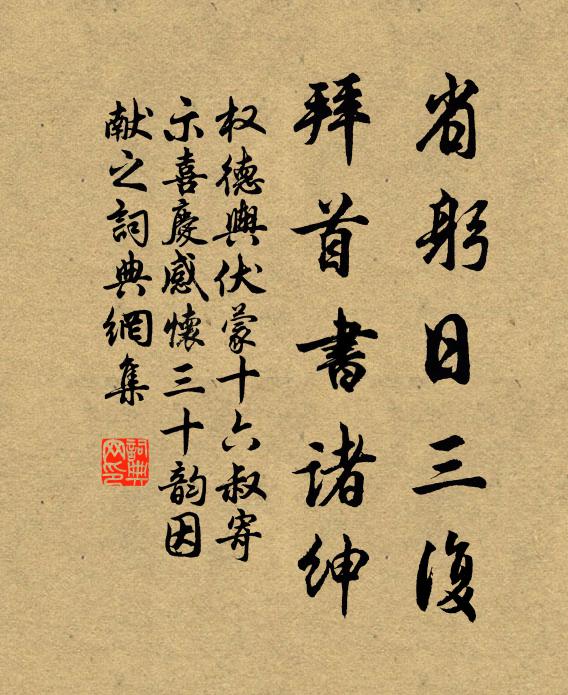 省躬日三復
拜首書諸紳
权德輿伏蒙十六叔寄
示喜慶感懷三十韵因
献之詞典網集
詞典
网印